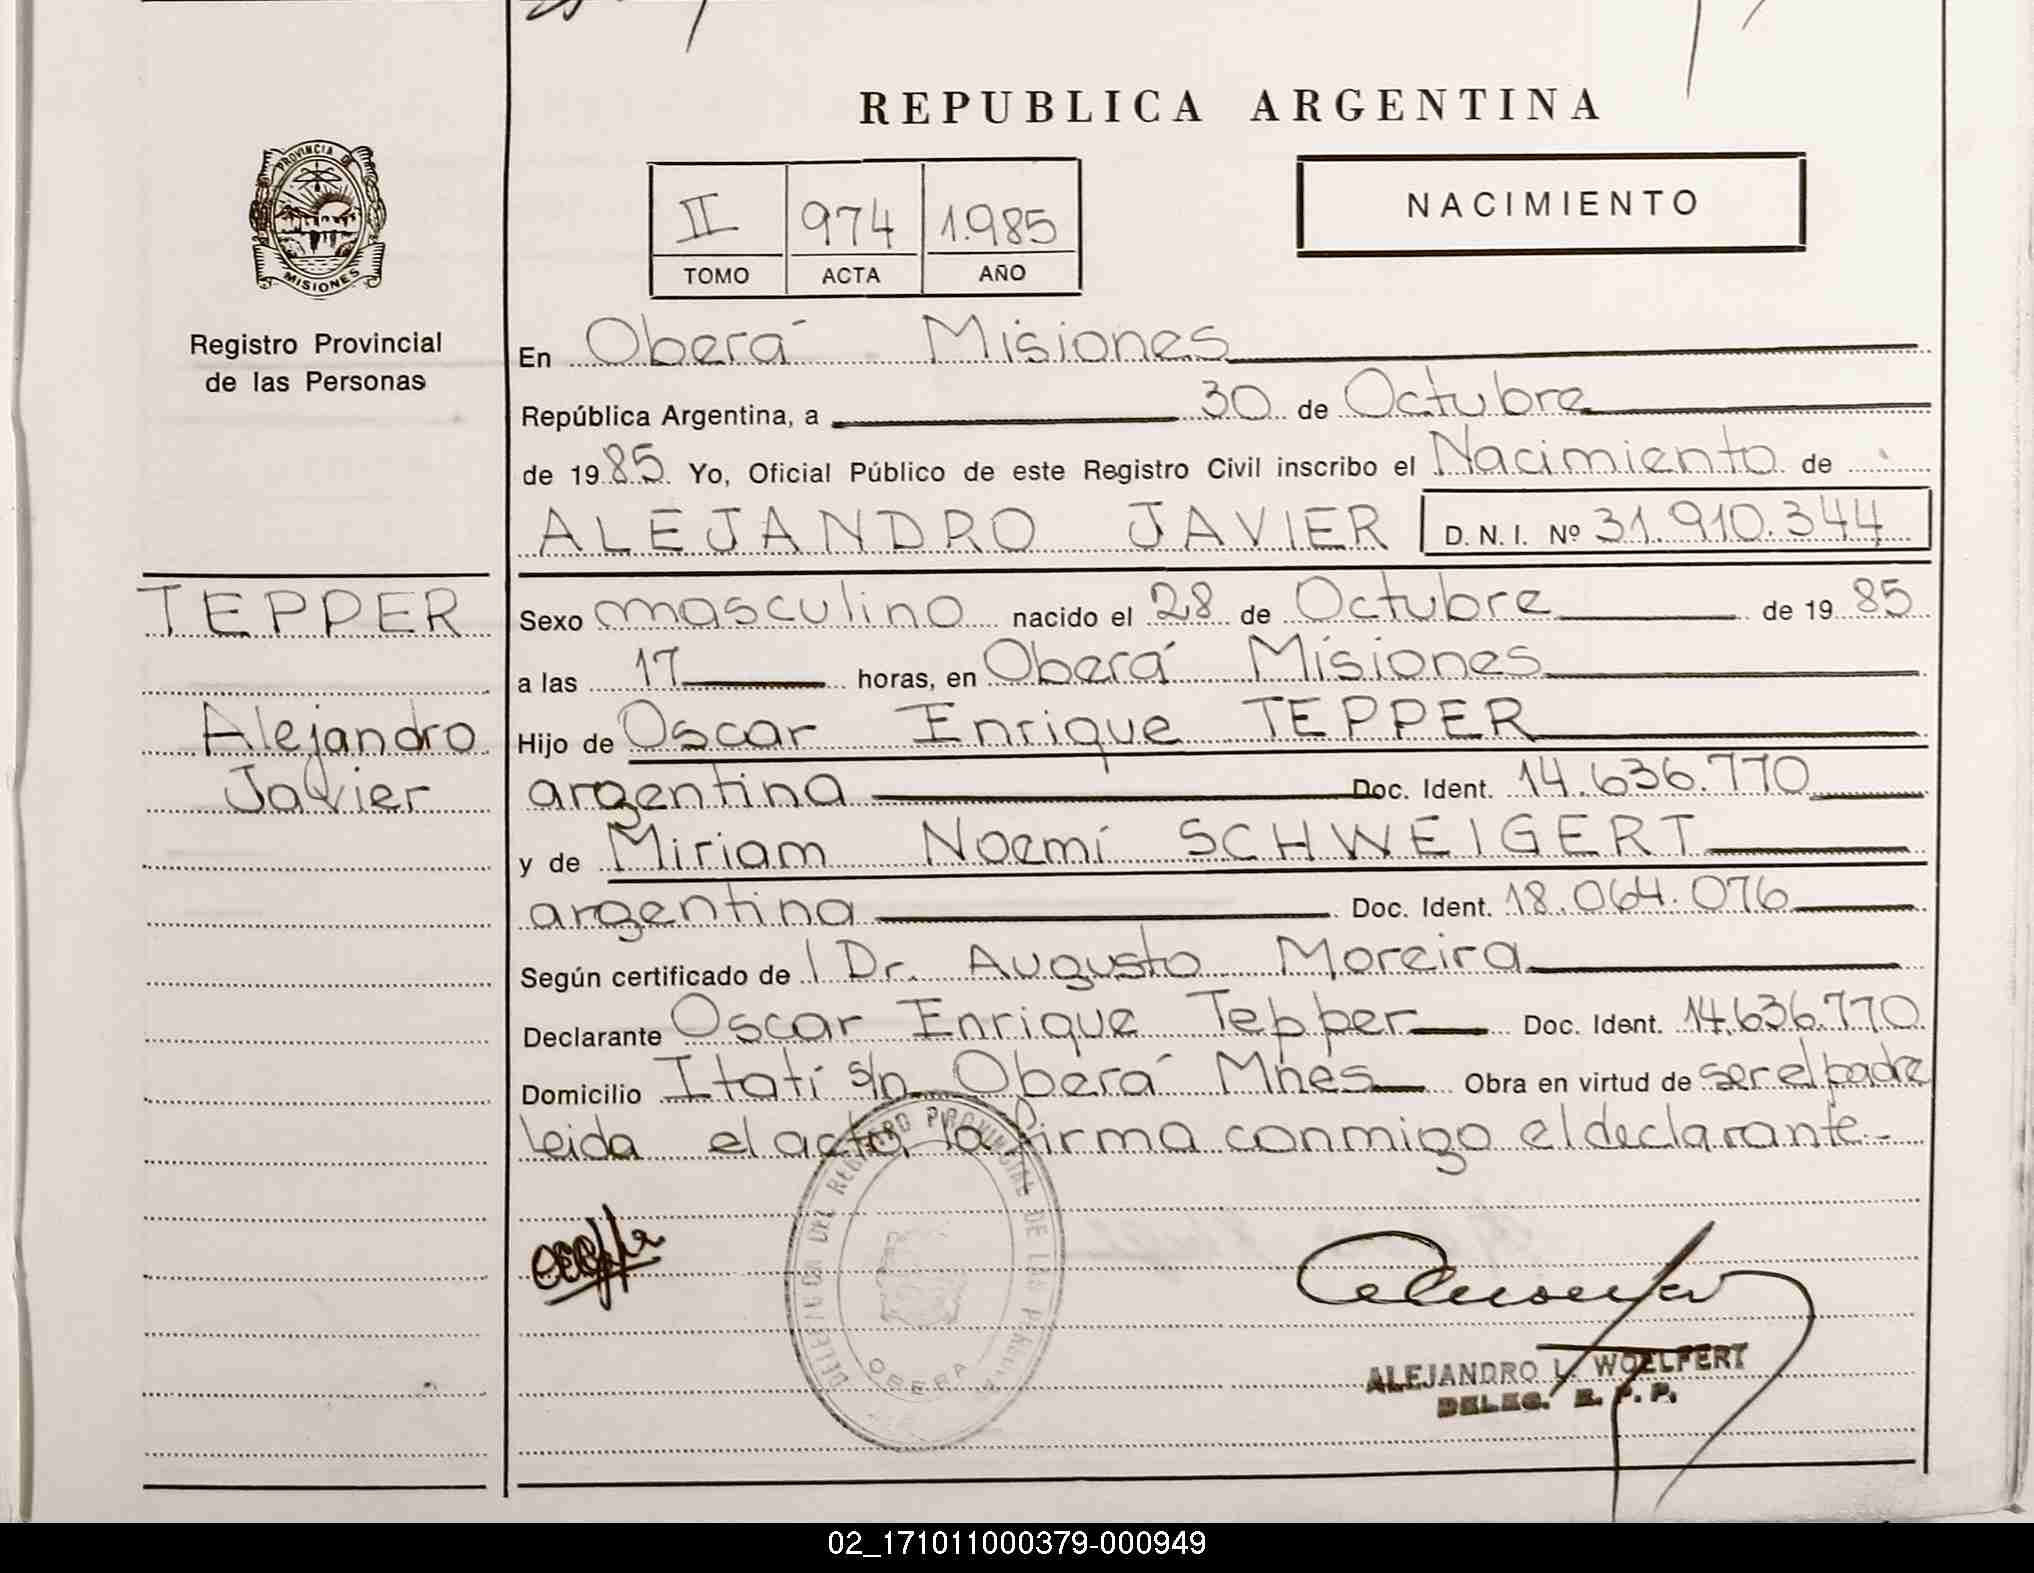 REPUBLICA ARGENTINA
PROVINCIA DE
MISIONES
Registro Provincial
de las Personas
II 974 1.985
TOMO ACTA AÑO
NACIMIENTO
En Oberá Misiones
República Argentina, a 30 de Octubre
de 19 85. Yo, Oficial Público de este Registro Civil inscribo el Nacimiento de
ALEJANDRO JAVIER D. N. I. Nº 31.910.344
TEPPER
Alejandro
Javier
Sexo masculino nacido el 28 de Octubre de 19 85
a las 17 horas, en Oberá Misiones
Hijo de Oscar Enrique TEPPER
argentina Doc. Ident. 14.636.770
y de Miriam Noemí SCHWEIGERT
argentina Doc. Ident. 18.064.076
Según certificado de l Dr. Augusto Moreira
Declarante Oscar Enrique Tepper Doc. Ident. 14.636.770
Domicilio Itatí s/n Oberá Mnes Obra en virtud de ser el padre
Leida el acta, la firma conmigo el declarante.-
DELEGACION DEL REGISTRO PROVINCIAL DE LAS PERSONAS
OBERA
ALEJANDRO L. WOELFERT
DELEG. R. P. P.
02_171011000379-000949